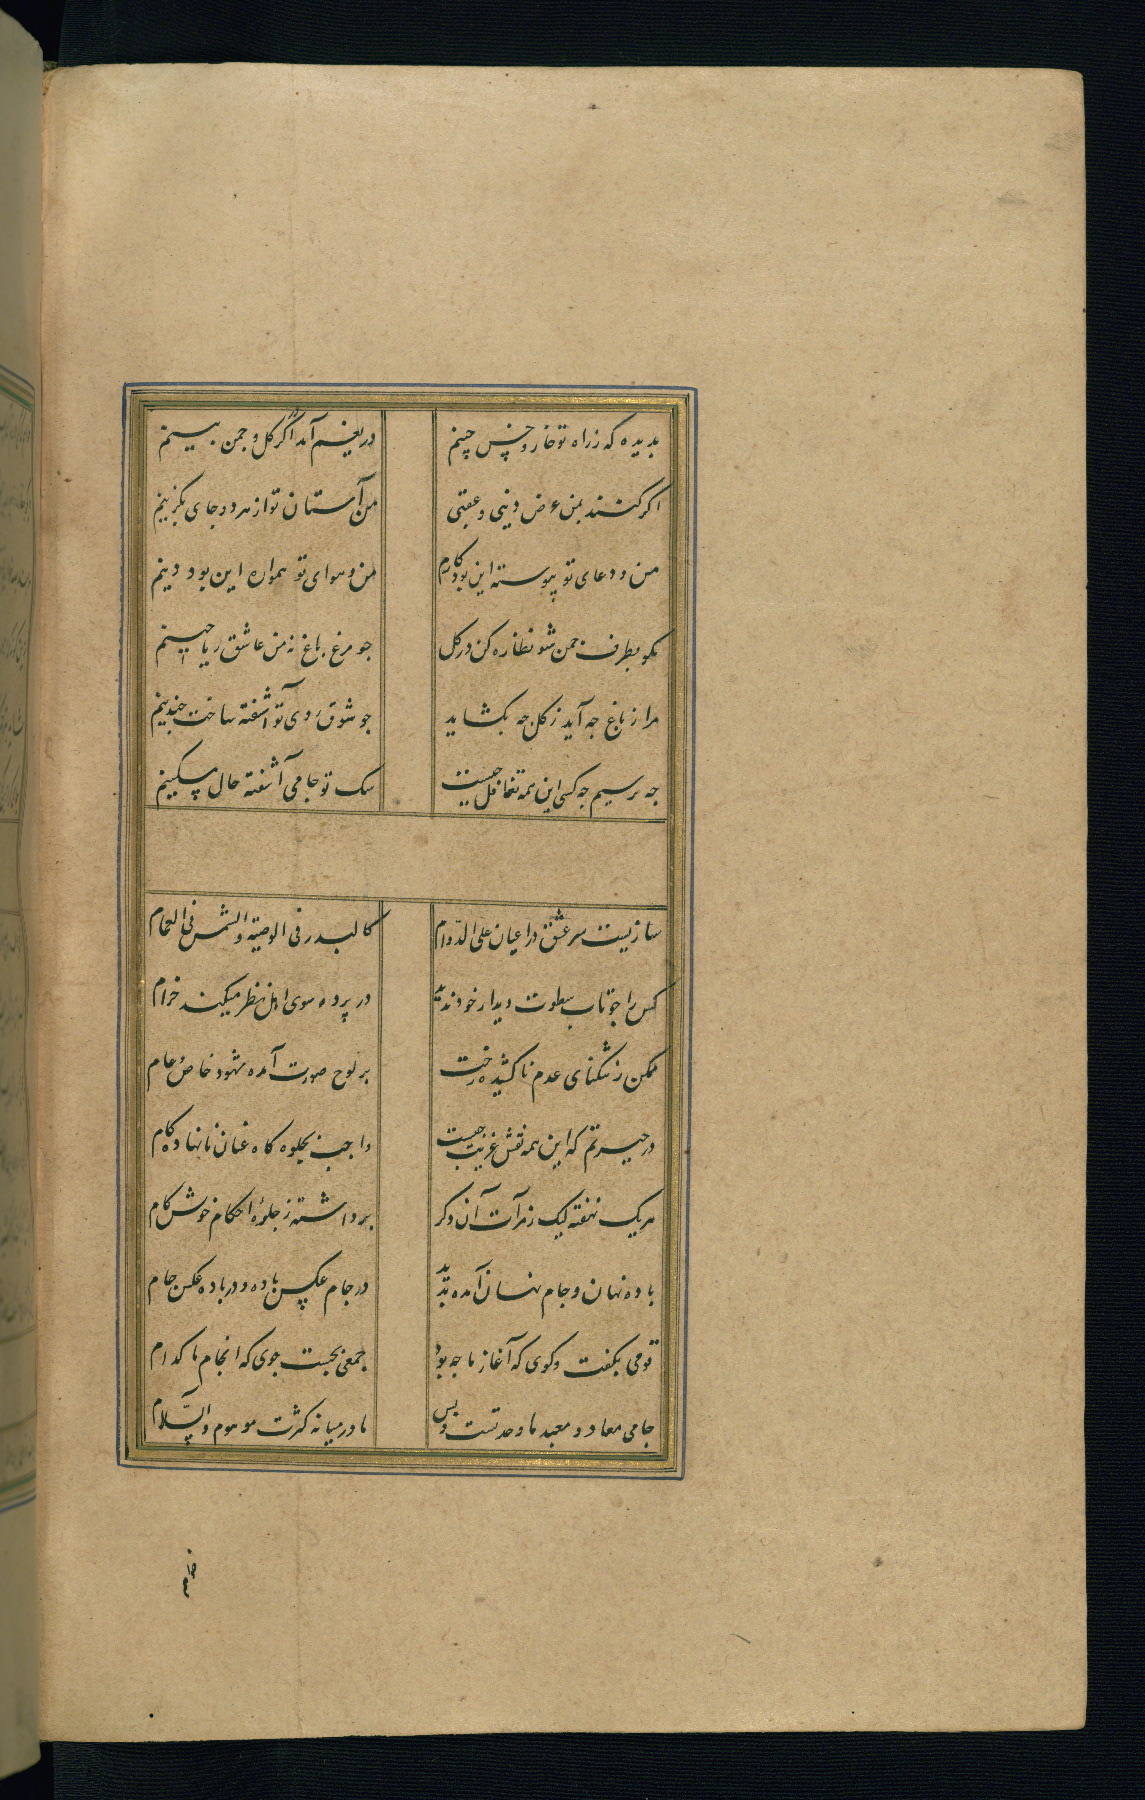 بدیده که ز راه تو خار و خس چینم	دریغم آید اگر گل و چمن بینم
اگر کنند بمن عرض دینی و عقبی	من آستان تو از هر دو جای بگزینم
من و دعای تو پیوسته این بود کارم	من و هوای تو همواره این بود دینم
مگو بطرف چمن شو نظاره کن در گل	چو مرغ باغ نه من عاشق ریاحینم
مرا ز باغ چه آید ز گل چه بگشاید	چو شوق روی تو آشفته ساخت چندینم
چه پرسیم چه کسی این همه تغافل چیست	سگ تو جامی آشفته حال مسکینم
ساریست سر عشق در اعیان علی الدوام	کالبدر فی الوصیة والشمس فی الغمام
کس را چو تاب سطوت دیدار خود ندید	در پرده سوی اهل نظر میکند خرام
ممکن ز تنگنای عدم ناکشیده رخت	بر لوح صورت آمده مشهود خاص و عام
در حیرتم که این همه نقش غریب چیست	واجب بجلوه گاه عیان نانهاده گام
هر یک نهفته لیک ز مرآت آن دگر	برداشته ز جلوهٔ احکام خویش کام
باده نهان و جام نهان آمده پدید	در جام عکس باده و در باده عکس جام
قومی بگفت و گوی که آغاز ما چه بود	جمعی بجست جوی که انجام ما کدام
جامی معاد و مبدء ما وحدتست و بس	ما در میانه کثرت موهوم والسلام